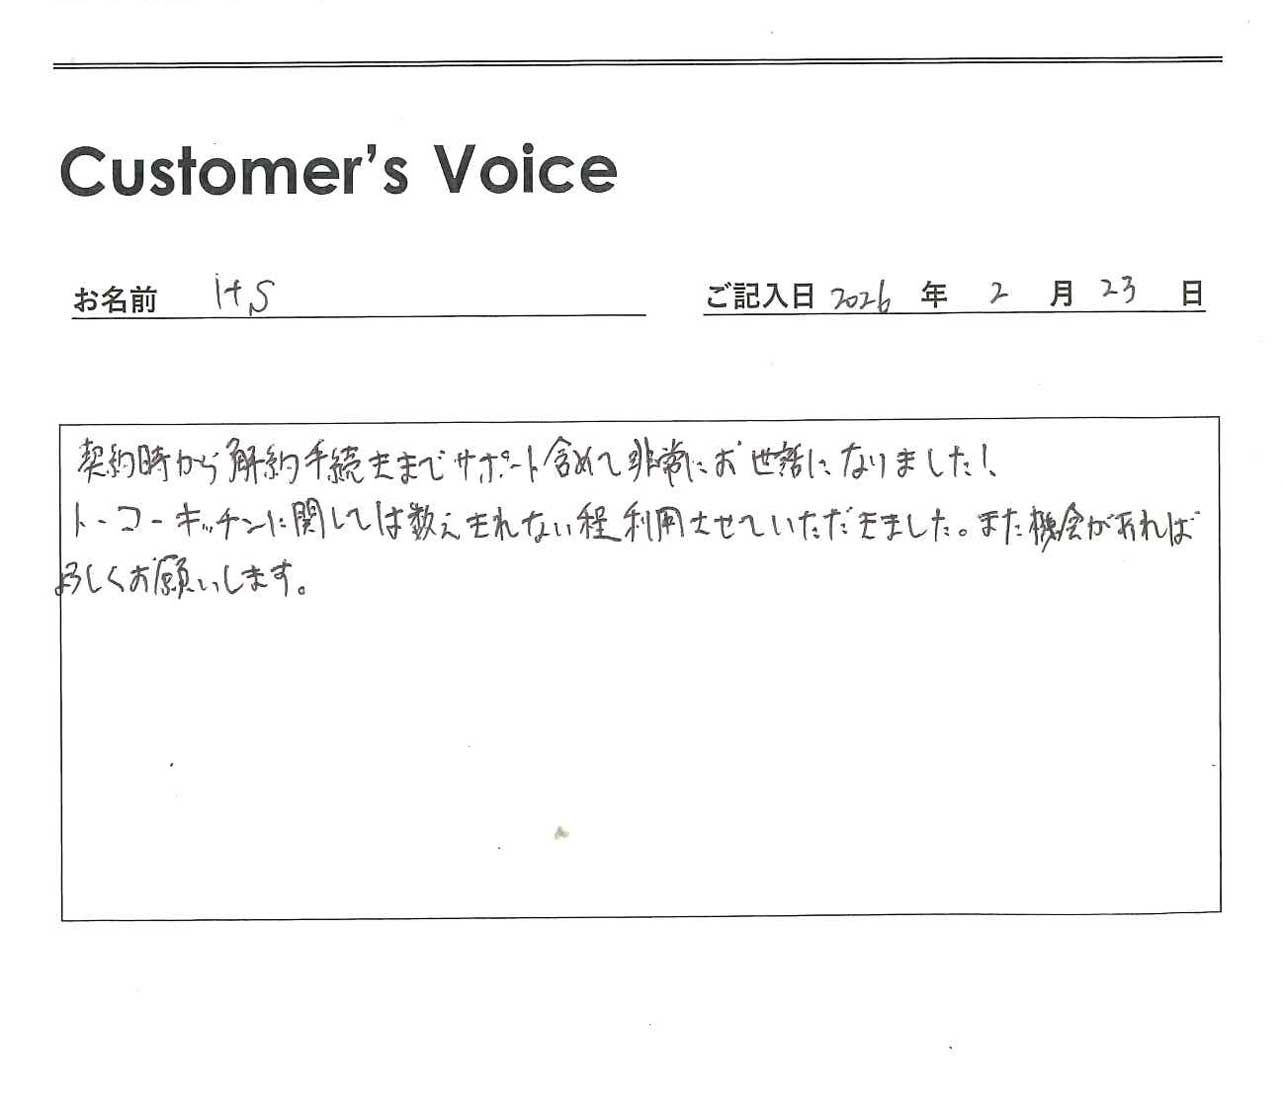 Customer's Voice
お名前 H S ご記入日 2026 年 2 月 23 日
契約時から解約手続きまでサポート含めて非常にお世話になりました!
トーコーキッチンに関しては数えきれない程利用させていただきました。また機会があれば
よろしくお願いします。